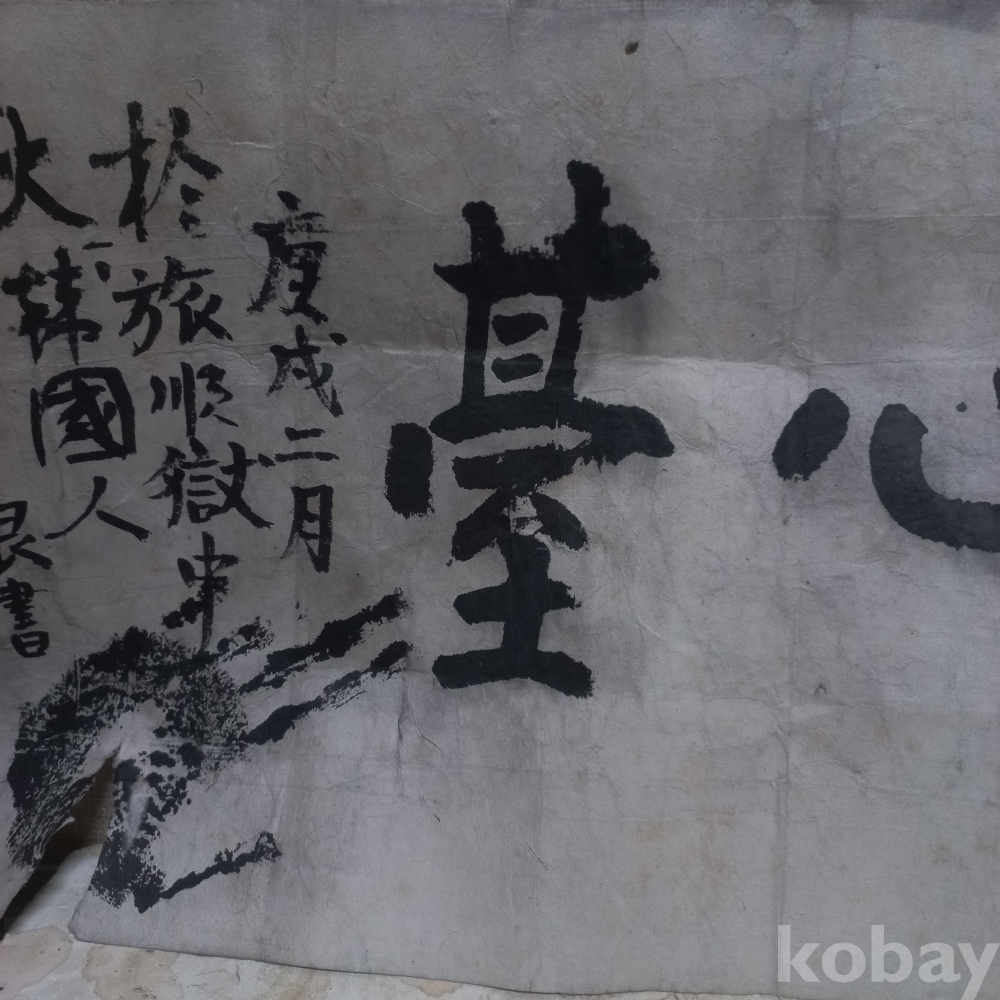 心
臺
庚戌二月
於旅順獄中
大韓國人
書
kobay